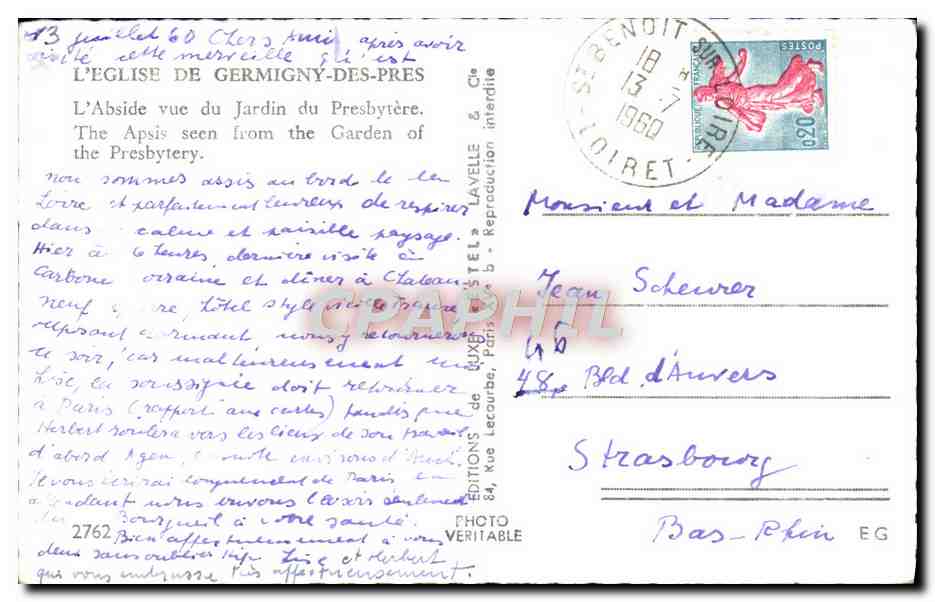 13 juillet 60 Chers Amis après avoir
visité cette merveille qu'est
L'EGLISE DE GERMIGNY-DES-PRES
L'Abside vue du Jardin du Presbytère.
The Apsis seen from the Garden of
the Presbytery.
nous sommes assis au bord de la
Loire et parfaitement heureux de respirer
dans calme et paisible paysage.
Hier à 6 heures, dernière visite à
et dîner à Chateau-
neuf hôtel style
reposant charmant, nous y retournerons
ce soir, car malheureusement
Lise, la soussignée doit retourner
à Paris (rapport aux cartes) tandis que
Herbert roulera vers les lieux de son travail
d'abord Agen, ensuite environs d'Auch.
Je vous écrirai longuement de Paris en
attendant nous buvons
Bourgueil à votre santé.
2762 Bien affectueusement à vous
deux sans oublier Lise et Herbert
que vous embrasse très affectueusement.
EDITIONS de LUXE "ESTEL" LAVELLE & Cie
84, Rue Lecourbe, Paris - Reproduction interdite
PHOTO
VERITABLE
ST BENOIT SUR LOIRE
18
13-7
1960
LOIRET
REPUBLIQUE FRANÇAISE
POSTES
0,20
Monsieur et Madame
Jean Scheurer
46
48, Bld. d'Anvers
Strasbourg
Bas-Rhin
EG
CPAPHIL